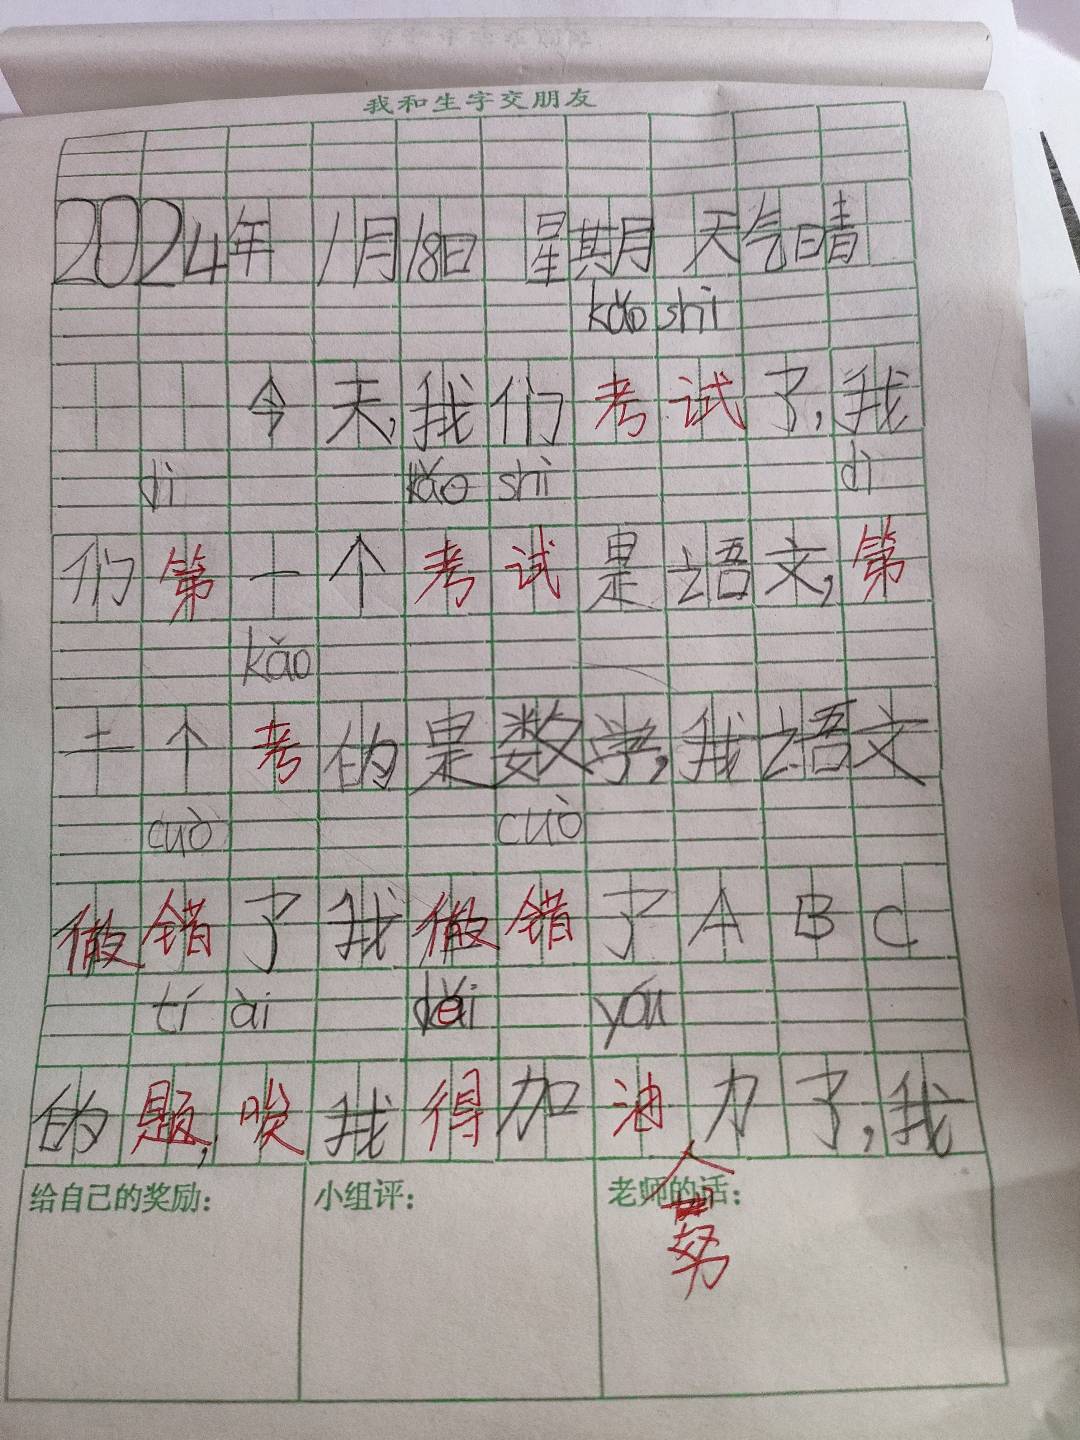 我和生字交朋友
2024年 1月18日 星期月 天气晴
kǎo shì
今天,我们考试了,我
dì kǎo shì dì
们第一个考试是语文,第
kǎo
二个考的是数学,我语文
cuò cuò
做错了我做错了ABC
tí ài děi yóu
的题,唉我得加油力了,我
给自己的奖励: 小组评: 老师的话:
努